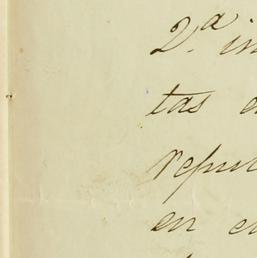 2.ª in
tas e
repu
en e